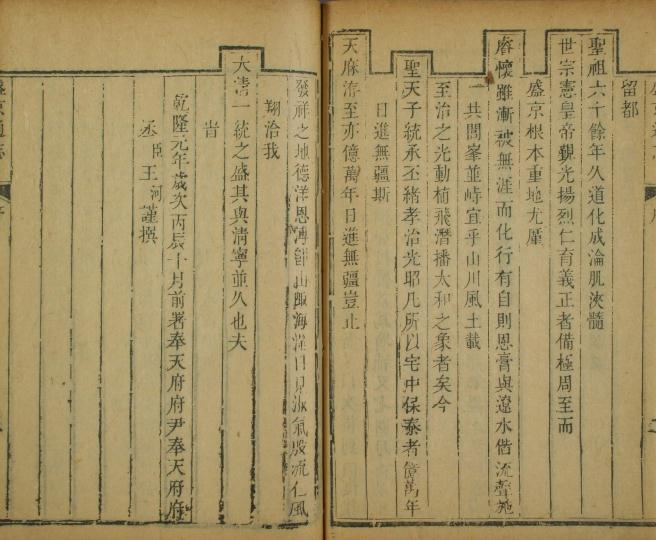 留都
聖祖六十餘年久道化成淪肌浹髓
世宗憲皇帝覲光揚烈仁育義正者備極周至而
盛京根本重地尤廑
睿懷雖漸被無涯而化行有自則恩膏與遼水偕流聲施
共閭峯並峙宜乎山川風土載
至治之光動植飛潛播太和之象者矣今
聖天子統承丕緒孝治光昭凡所以宅中保泰者億萬年
日進無疆斯
天庥洊至亦億萬年日進無疆豈止
發祥之地德洋恩溥
山陬海澨日見淑氣股流仁風
翔洽我
大清一統之盛其與清寧並久也夫
旹
乾隆元年歲次丙辰十月前署奉天府府尹奉天府府
丞臣王河謹撰